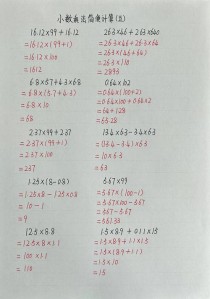 小数乘法简便计算(五)
16.12×99+16.12
=16.12×(99+1)
=16.12×100
=1612
26.3×46+2.63×640
=26.3×46+26.3×64
=26.3×(46+64)
=26.3×110
=2893
6.8×5.7+4.3×6.8
=6.8×(5.7+4.3)
=6.8×10
=68
0.64×102
=0.64×(100+2)
=0.64×100+0.64×2
=64+1.28
=65.28
2.37×99+2.37
=2.37×(99+1)
=2.37×100
=237
13.4×6.3-3.4×6.3
=(13.4-3.4)×6.3
=10×6.3
=63
1.25×(8-0.8)
=1.25×8-1.25×0.8
=10-1
=9
5.67×99
=5.67×(100-1)
=5.67×100-5.67
=567-5.67
=561.33
12.5×8.8
=12.5×8×1.1
=100×1.1
=110
1.5×8.9+1.1×1.5
=1.5×(8.9+1.1)
=1.5×10
=15